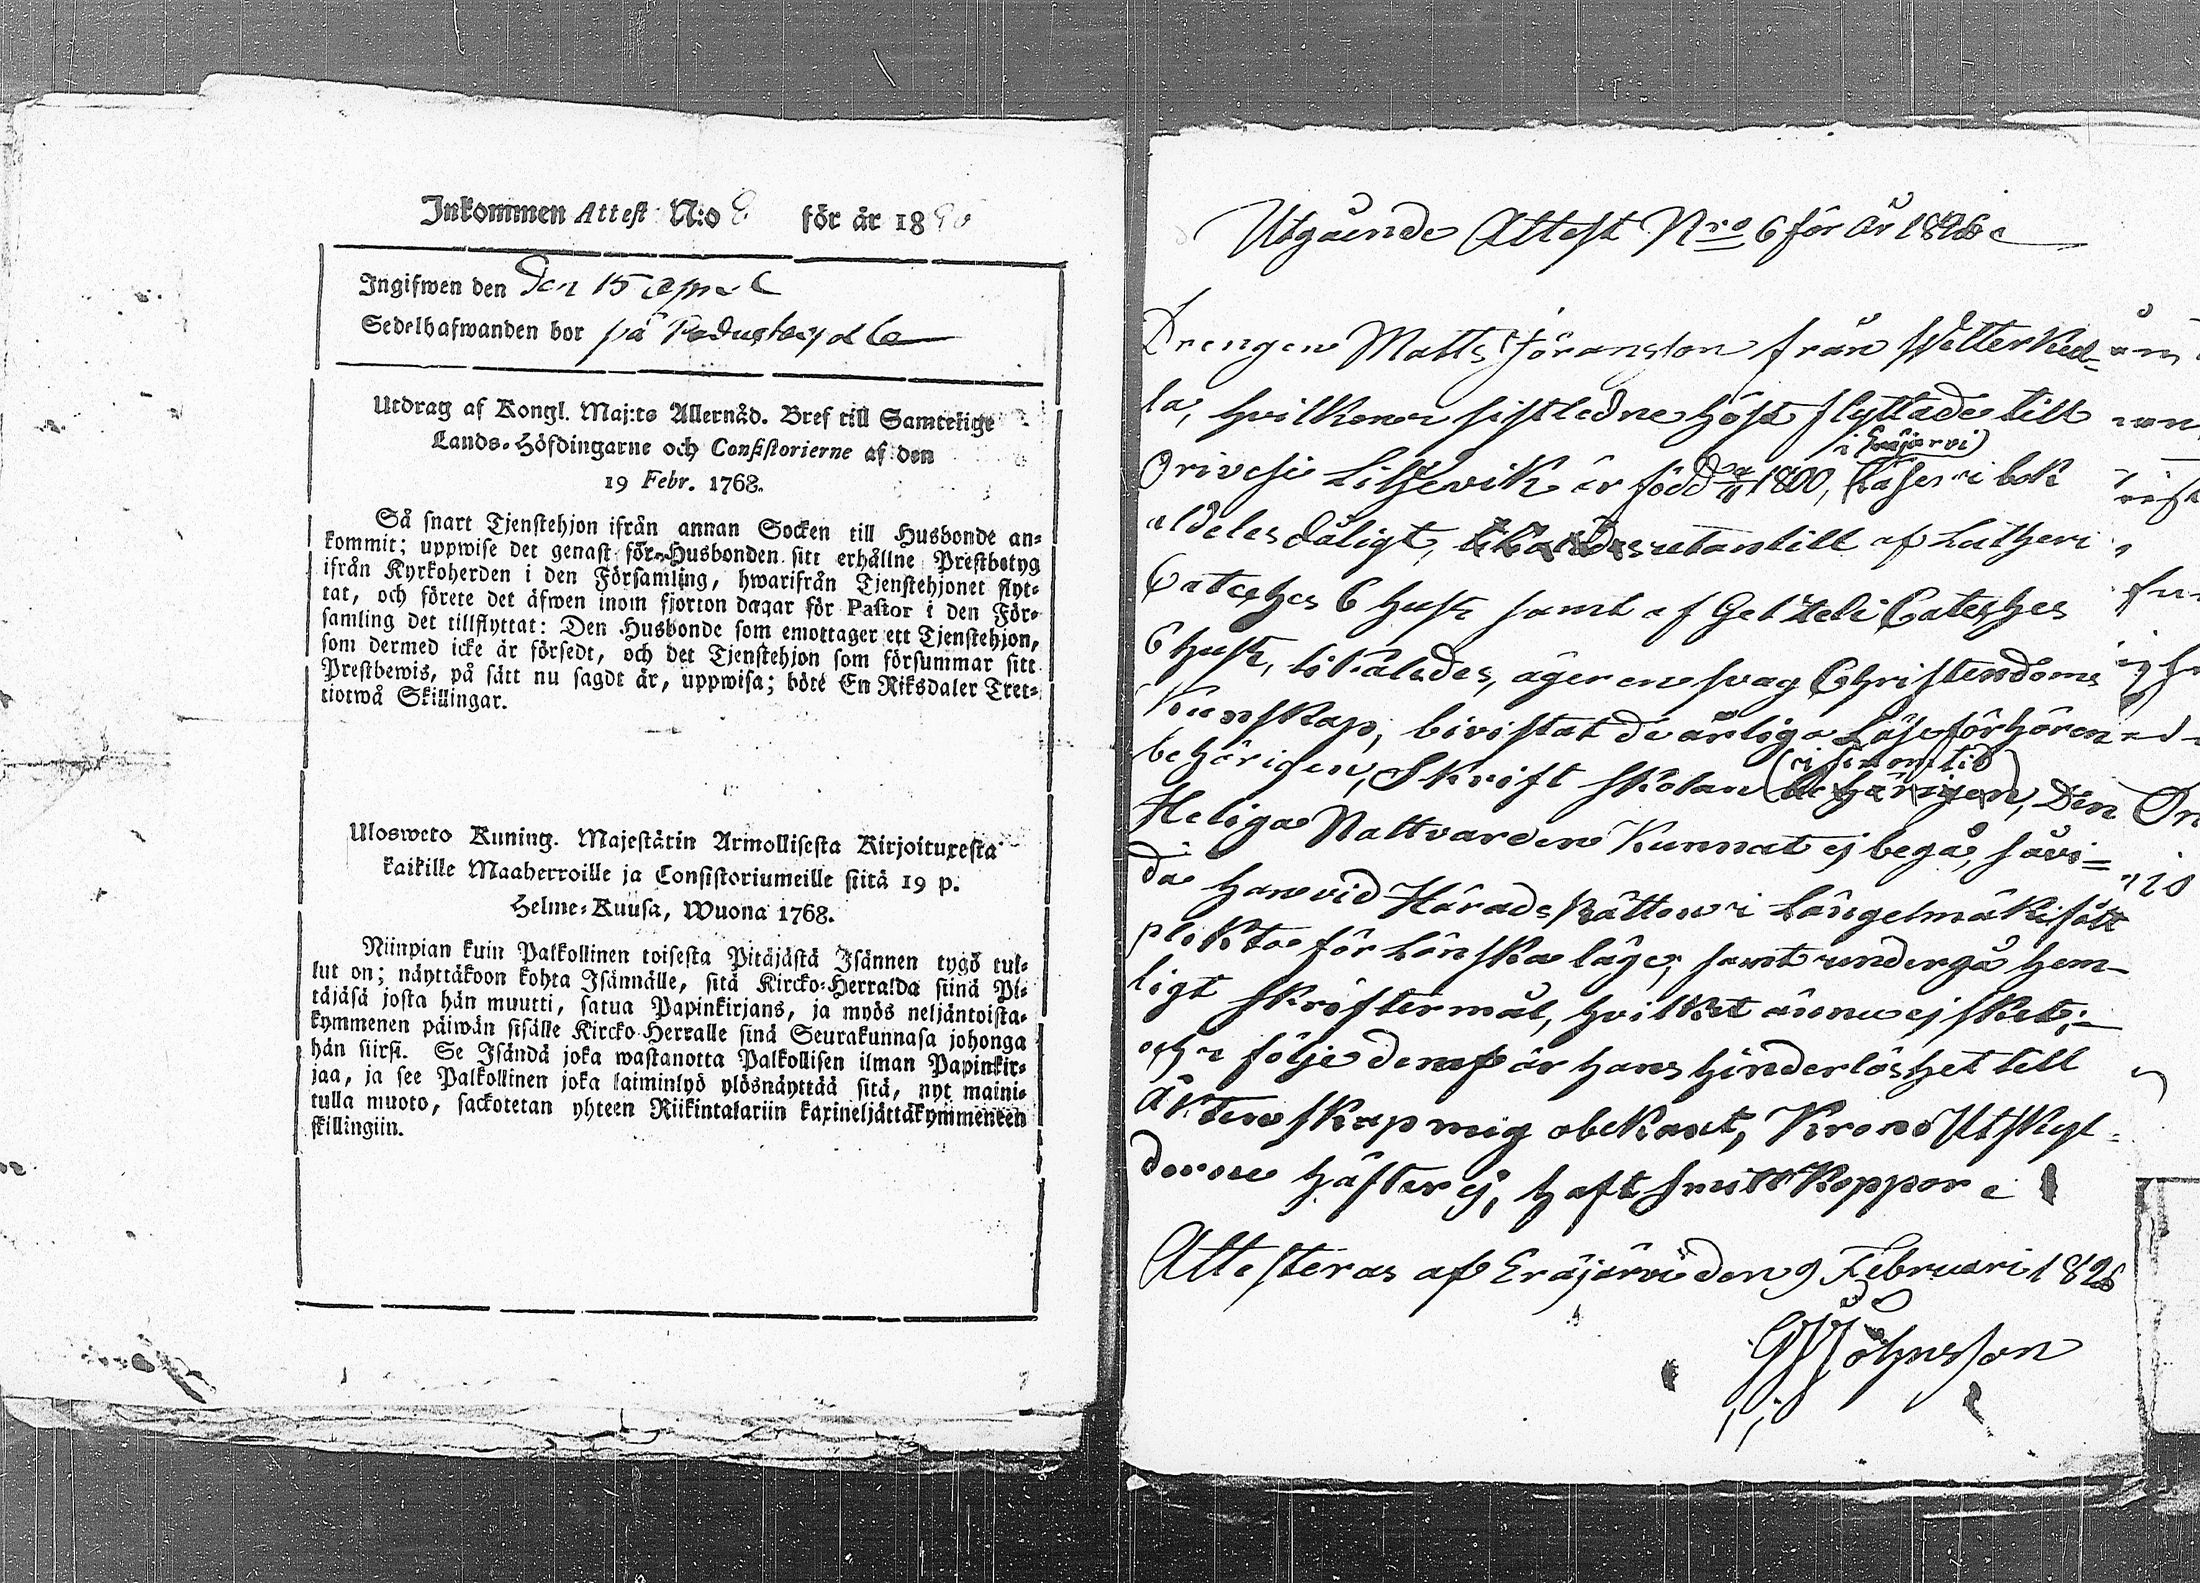 Inkommen Attest N:o 8 för år 18
Ingifwen den Den 15 April
Sedelhafwanden bor på
Utdrag af Kongl. Maj:ts Allernåd. Bref till Samtelige
Lands-Höfdingarne och Consistorierne af den
19 Febr. 1768.
Så snart Tjenstehjon ifrån annan Socken till Husbonde an-
kommit; uppwise det genast för Husbonden sitt erhållne Prestbetyg
ifrån Kyrkoherden i den Församling, hwarifrån Tjenstehjonet flyt-
tat, och förete det äfwen inom fjorton dagar för Pastor i den För-
samling det tillflyttat: Den Husbonde som emottager ett Tjenstehjon,
som dermed icke är försedt, och det Tjenstehjon som försummar sitt
Prestbewis, på sätt nu sagdt är, uppwisa; böte En Riksdaler Tret-
tiotwå Skillingar.
Ulosweto Kuning. Majestätin Armollisesta Kirjoituxesta
kaikille Maaherroille ja Consistoriumeille siitä 19 p.
Helme-Kuusa, Wuona 1768.
Niinpian kuin Palkollinen toisesta Pitäjästä Isännen tygö tul-
lut on; näyttäkoon kohta Isännälle, sitä Kircko-Herralda siinä Pi-
täjäsä josta hän muutti, satua Papinkirjans, ja myös neljäntoista-
kymmenen päiwän sisälle Kircko-Herralle sinä Seurakunnasa johonga
hän siirsi. Se Isändä joka wastanotta Palkollisen ilman Papinkir-
jaa, ja see Palkollinen joka laiminlyö ylösnäyttää sitä, nyt maini-
tulla muoto, sackotetan yhteen Riikintalariin kaxineljättäkymmenteen
skillingiin.
Utgående Attest Nro 6 för år 1826
Drengen Matts Jöransson från Vetterkul-
la, hvilken sistledne höst flyttade till
i Eräjärvi
Orivesi Litsevik är född 1800, Läser i bok
aldeles dåligt, utantill af Lutheri
Cateches 6 hust samt af Getzeli Cateches
6 hust, likaledes, äger en svag Christendoms
Kunskap, bivistat de årliga Läseförhören
i sin tid
behörigen, Skrift skolan behörigen, Den
Heliga Nattvarden kunnat ej begå, såvi=
da han vid Härads Rätten i Längelmäki fått
plikta för Lönskaläge, samt undergå hem-
ligt skriftermål, hvilket ännu ej skett;
och i följe deraf är hans hinderlöshet till
Äktenskap mig obekant, Krono Utskyl-
derne häfter ej, haft smittkoppor
Attesteras af Eräjärvi den 9 Februari 1826
GJ Johnsson